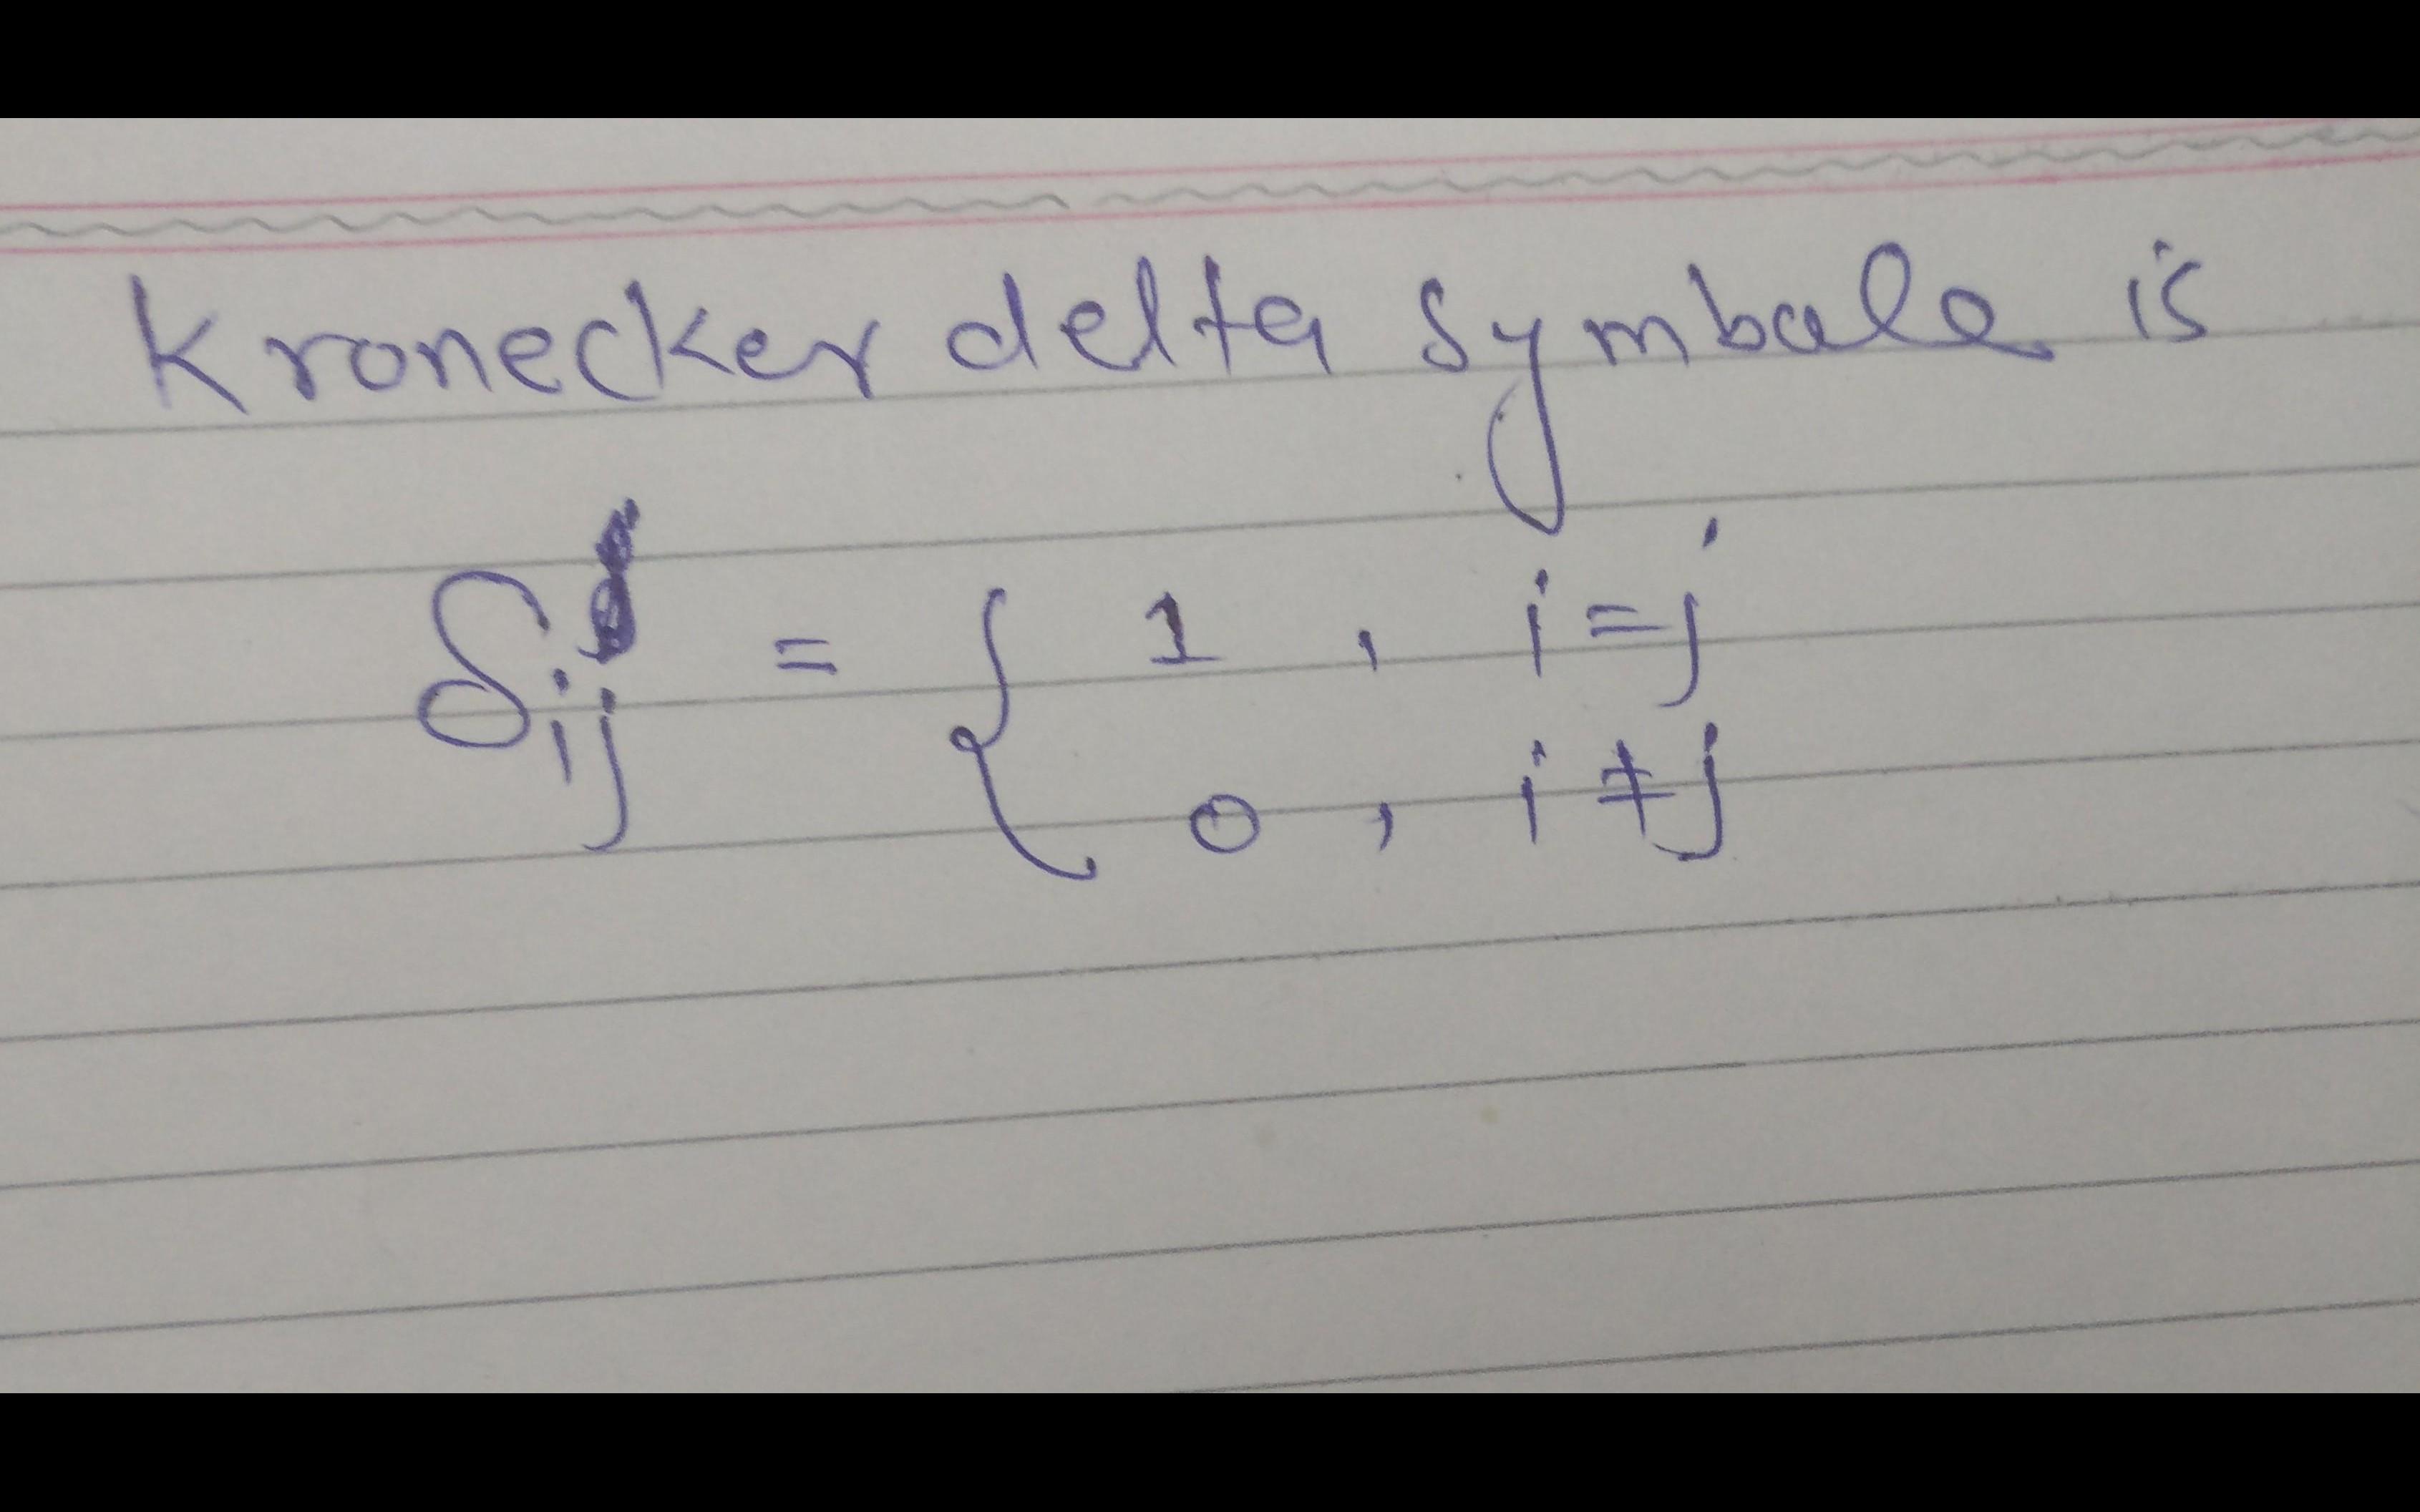 Kronecker delta symbale is
δij = { 1 , i = j
0 , i ≠ j